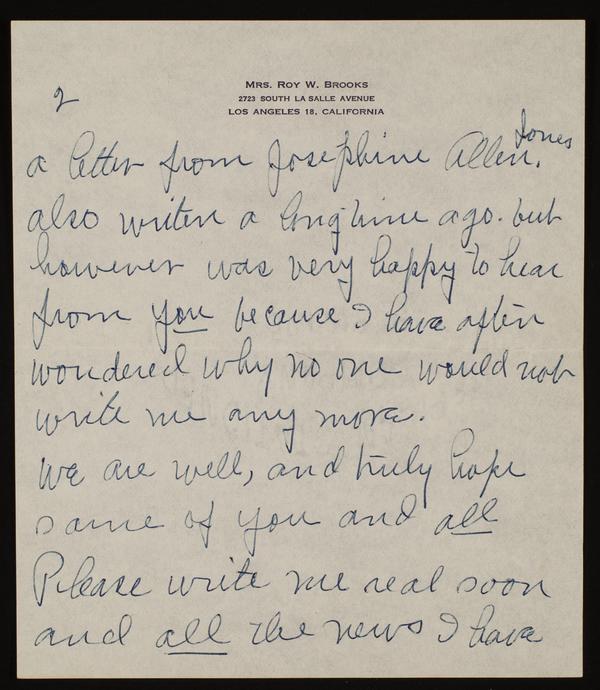 2
MRS. ROY W. BROOKS
2723 SOUTH LA SALLE AVENUE
LOS ANGELES 18, CALIFORNIA
Jones
a letter from Josephine Allen.
also writen a long time ago. but
however was very happy to hear
from you because I have often
wondered why no one would not
write me any more.
We are well, and truly hope
same of you and all
Please write me real soon
and all the news I have